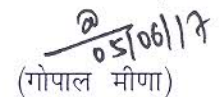 05/06/17
(गोपाल मीणा)